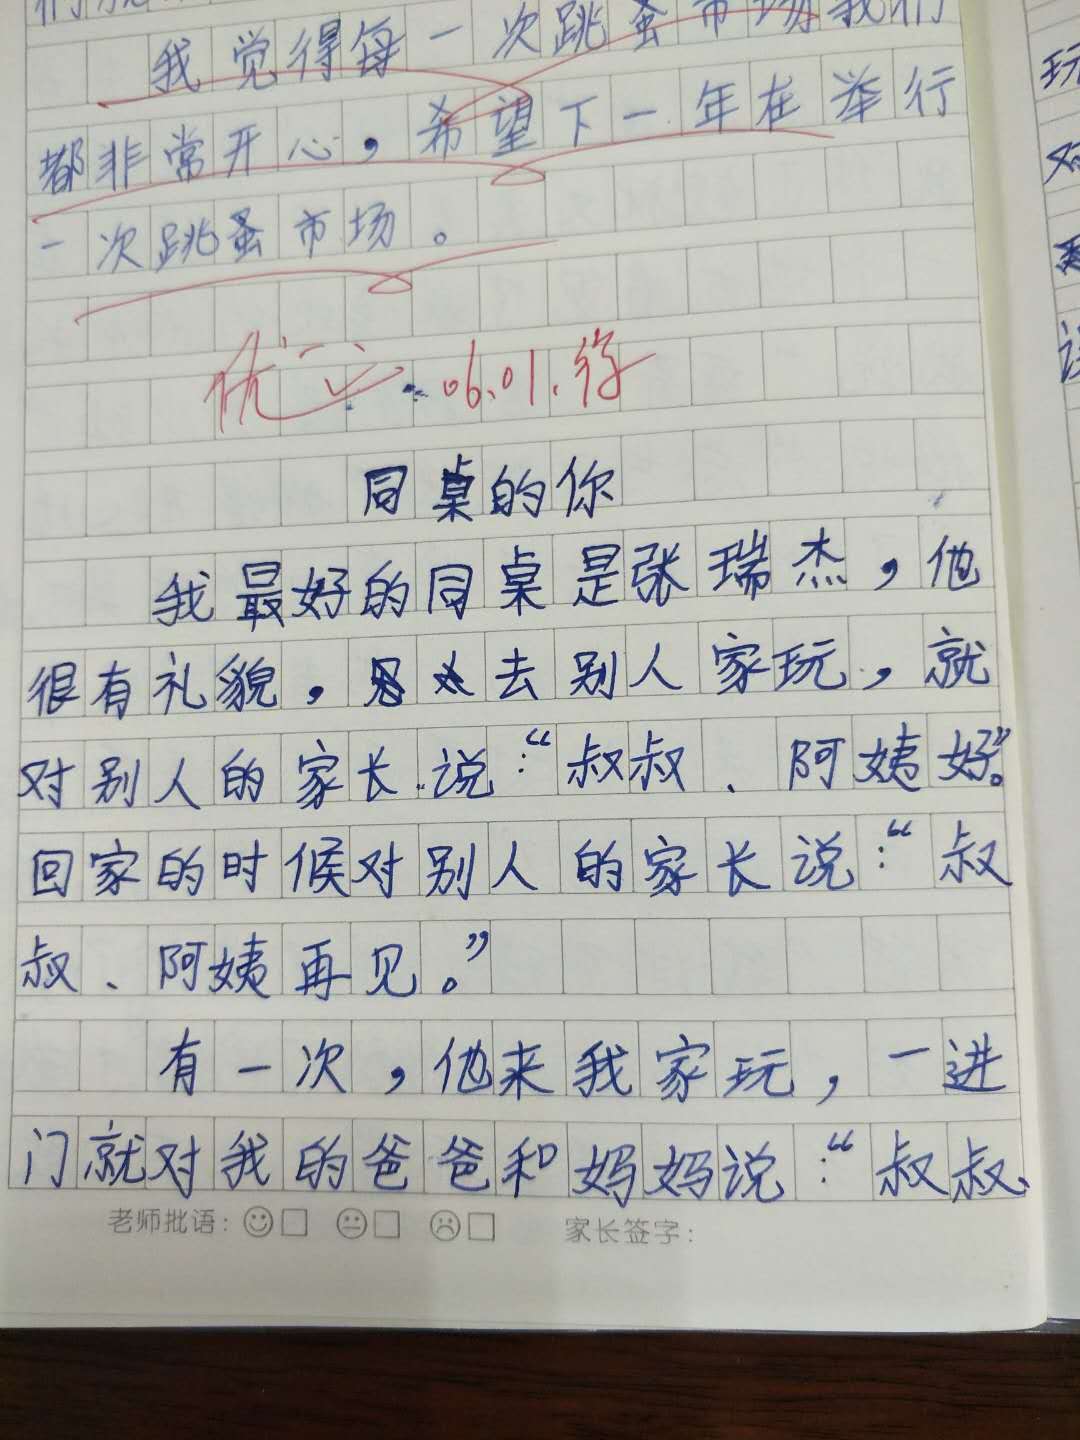 我觉得每一次跳蚤市场我们
都非常开心，希望下一年在举行
一次跳蚤市场。
优 06.01.
同桌的你
我最好的同桌是张瑞杰，他
很有礼貌，去别人家玩，就
对别人的家长说：“叔叔、阿姨好。”
回家的时候对别人的家长说：“叔
叔、阿姨再见。”
有一次，他来我家玩，一进
门就对我的爸爸和妈妈说：“叔叔、
老师批语： 家长签字：